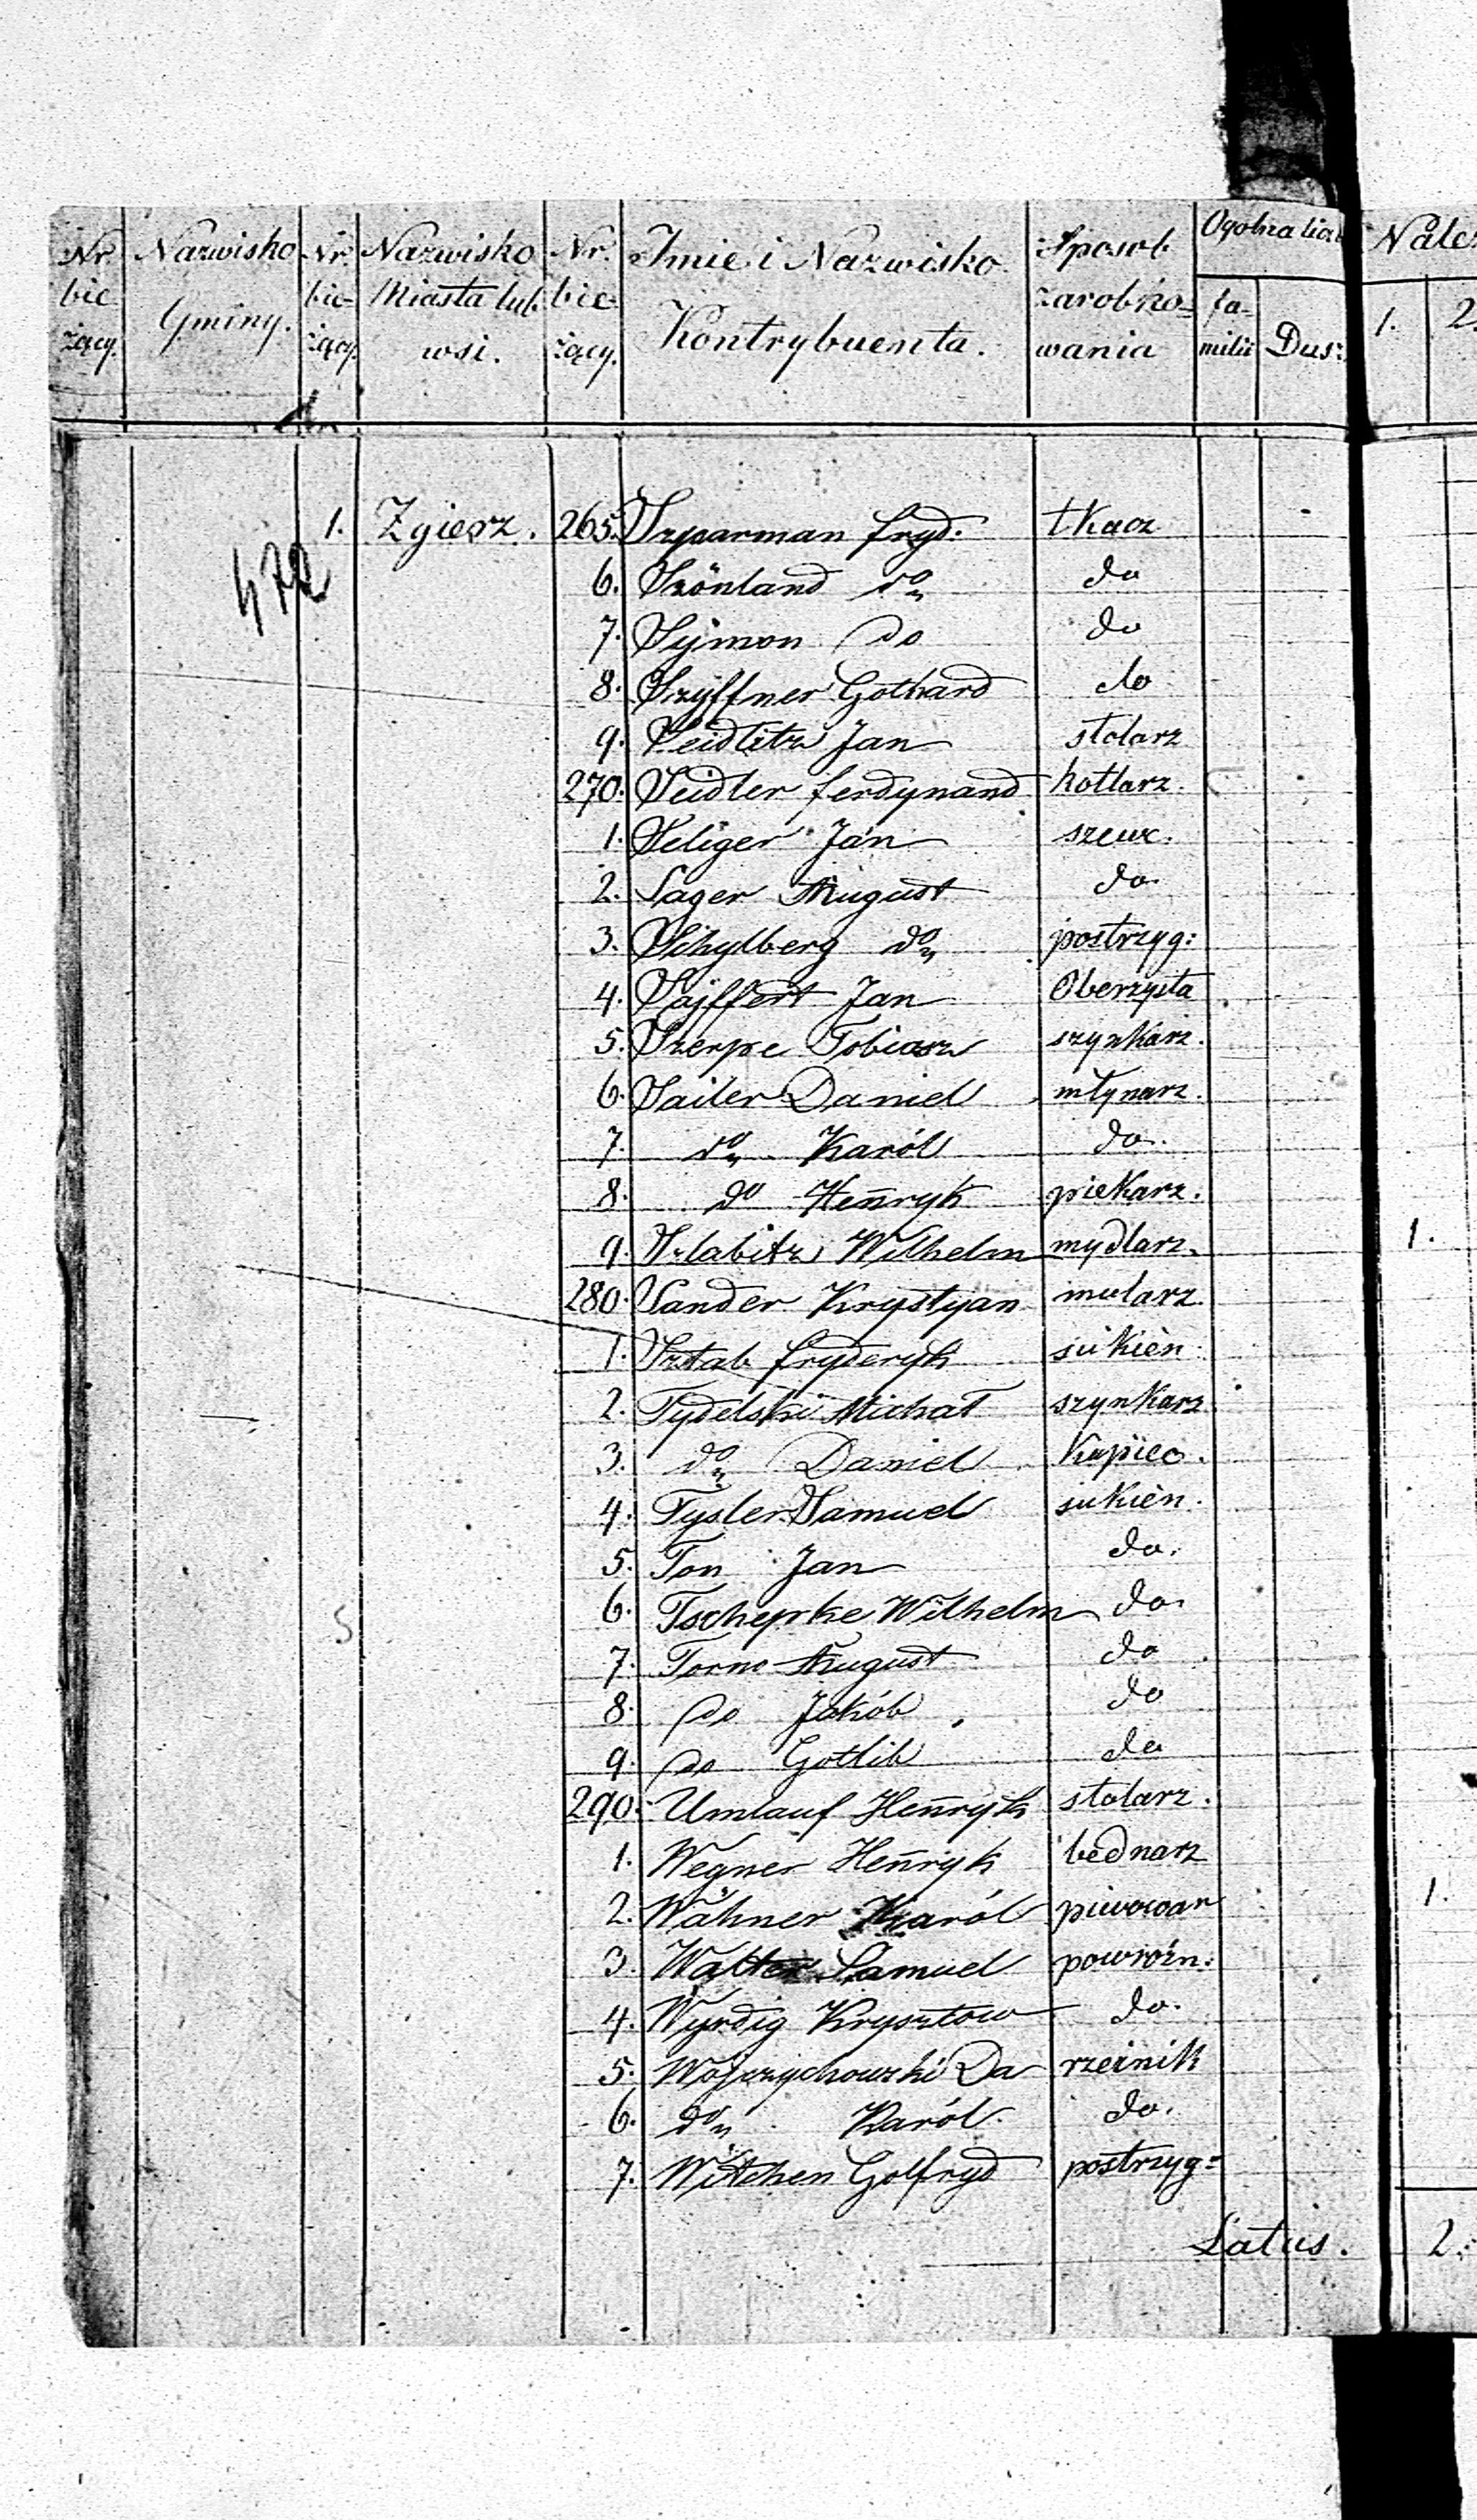 Nr. bieżący. Nazwisko Gminy. Nr. bieżący. Nazwisko Miasta lub wsi. Nr. bieżący. Imie i Nazwisko Kontrybuenta. Sposob zarobkowania Ogolna liczb familii Dusz Nale 1. 2.
1. Zgierz. 265. Szparman fryd: tkacz
472
6. Szönland do do
7. Symon do do
8. Szyffner Gothard do
9. Seidlitz Jan stolarz
270. Seidler ferdynand kotlarz.
1. Seliger Jan szewc.
2. Sager August do.
3. Schylberg do postrzyg:
4. Sayffert Jan Oberzysta
5. Szerpe Tobiasz szynkarz.
6. Sailer Daniel młynarz.
7. do Karól do.
8. do Henryk piekarz.
9. Szlabitz Wilhelm mydlarz. 1.
280. Sander Krystyan mularz.
1. Sztab fryderyk sukien:
2. Tydelski Michał szynkarz
3. do Daniel Kupiec.
4. Tysler Samuel sukien.
5. Ton Jan do.
6. Tschepke Wilhelm do.
7. Torno August do
8. do Jakób do
9. do Gotlib do
290. Umlauf Henryk stolarz.
1. Wegner Henryk bednarz
2. Wähner Karól piwowar 1.
3. Walter Samuel powroźn:
4. Wyrdig Krysztow do.
5. Da rzeźnik
6. do Karól. do.
7. Witchen Golfryd postrzyg:
Latus. 2.